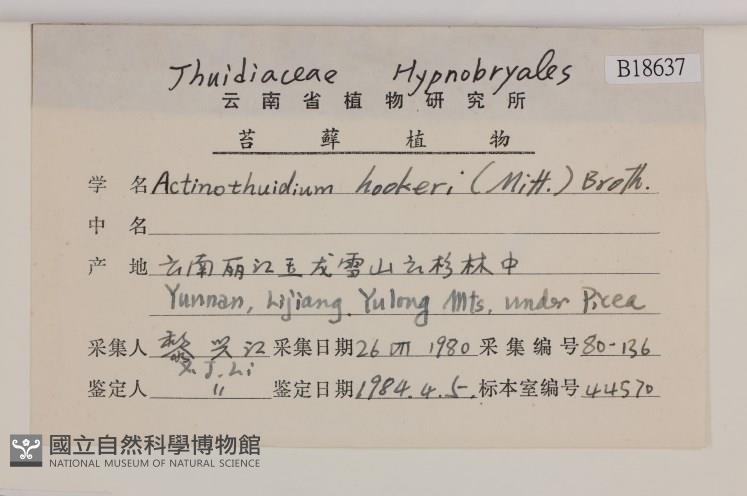 Thuidiaceae Hypnobryales
B18637
云南省植物研究所
苔藓植物
学 名 Actinothuidium hookeri (Mitt.) Broth.
中 名
产 地 云南丽江玉龙雪山云杉林中
Yunnan, Lijiang. Yulong Mts, under Picea
采集人 黎兴江 采集日期 26 VII 1980 采集编号 80-136
X. J. Li
鉴定人 〃 鉴定日期 1984.4.5. 标本室编号 44570
國立自然科學博物館
NATIONAL MUSEUM OF NATURAL SCIENCE